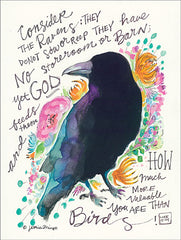 Consider
the Ravens: They
DO NOT SOW OR REAP They have
NO Storeroom or Barn;
yet GOD
feeds
them
and
HOW
much
MORE
Valuable
YOU ARE THAN
Birds!